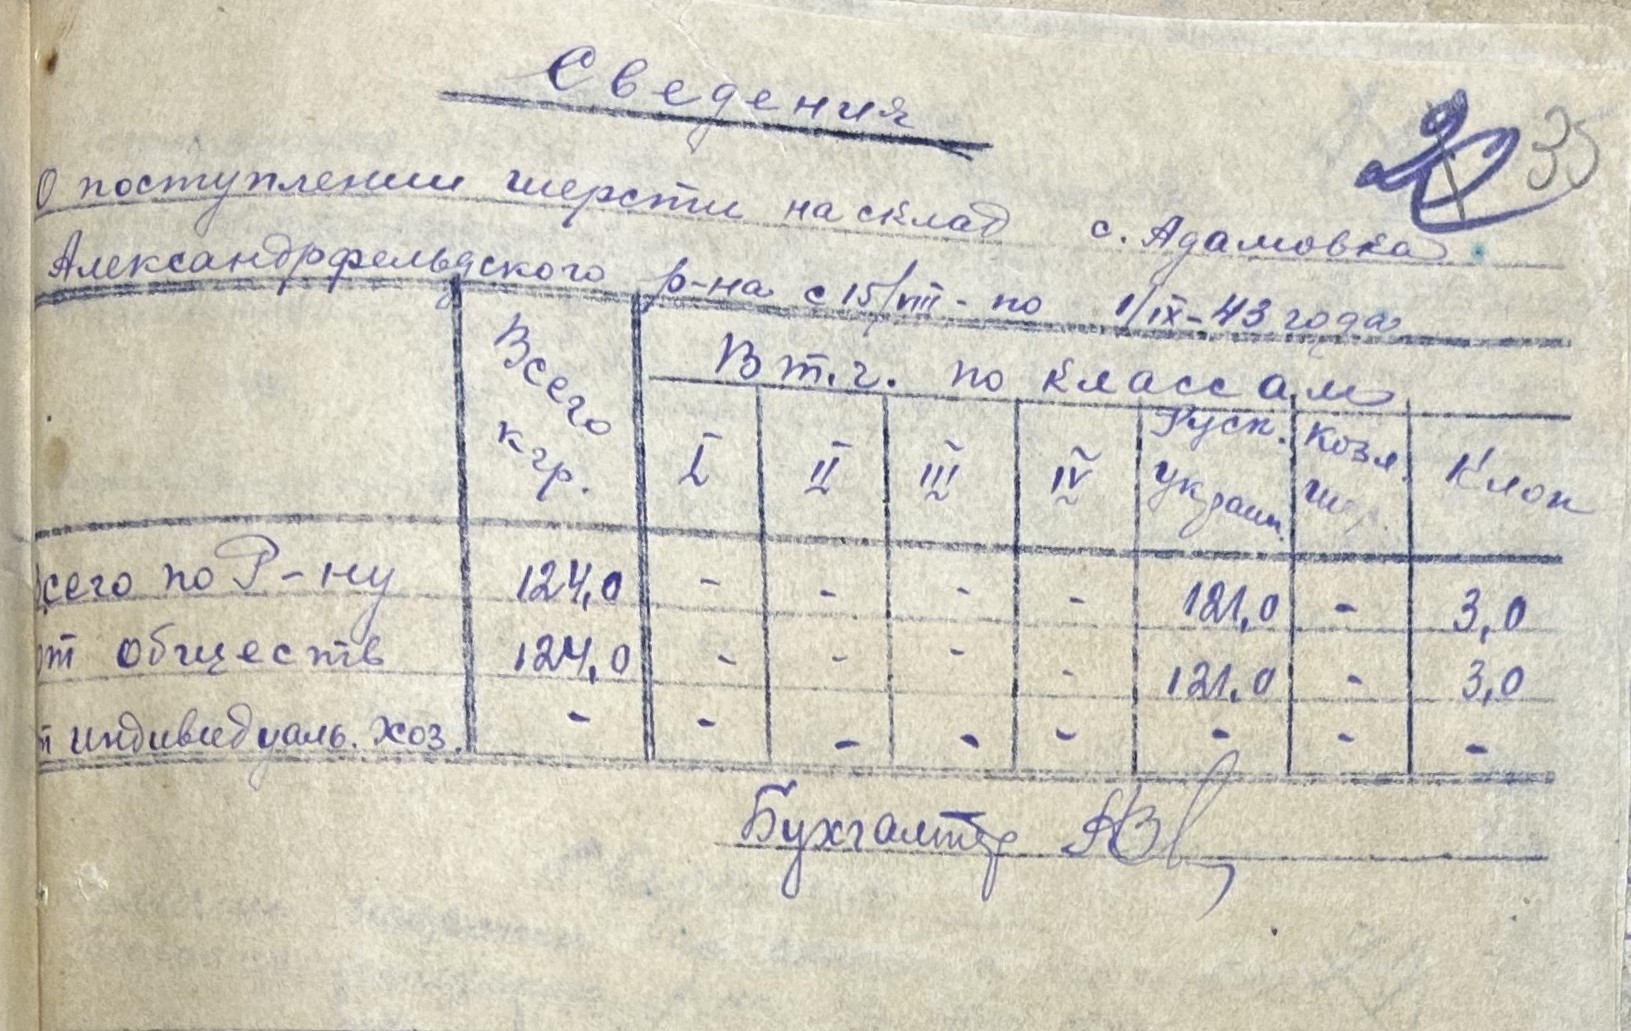 35
Сведения
О поступлении шерсти на склад с. Адамовка
Александрфельдского р-на с 15/VIII - по 1/IX-43 года
Всего кгр. В т.ч. по классам
I II III IV Руск. украин. козл. шер. Клок
Всего по Р-ну 124,0 - - - - 121,0 - 3,0
от обществ 124,0 - - - - 121,0 - 3,0
от индивидуаль. хоз. - - - - - - - -
Бухгалтер